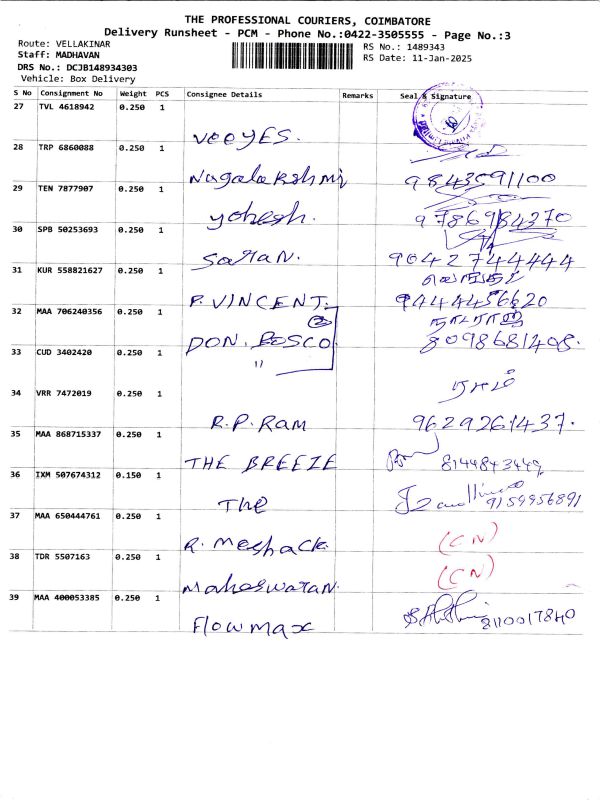 THE PROFESSIONAL COURIERS, COIMBATORE
Delivery Runsheet - PCM - Phone No.:0422-3505555 - Page No.:3
Route: VELLAKINAR
RS No.: 1489343
Staff: MADHAVAN
RS Date: 11-Jan-2025
DRS No.: DCJB148934303
Vehicle: Box Delivery
S No Consignment No Weight PCS Consignee Details Remarks Seal & Signature
27 TVL 4618942 0.250 1
VeeYES.
28 TRP 6860088 0.250 1
Nagalakshmi 9843091100
29 TEN 7877907 0.250 1
yohesh. 9786984370
30 SPB 50253693 0.250 1
Saran. 9042744444
31 KUR 558821627 0.250 1
P. VINCENT. 9444456620
32 MAA 706240356 0.250 1
நடராஜ்
DON. BOSCO 2 8098681408.
33 CUD 3402420 0.250 1
"
34 VRR 7472019 0.250 1
ராம்
R.P. RAM 9629261437.
35 MAA 868715337 0.250 1
THE BREEZE 8144843449
36 IXM 507674312 0.150 1
The 9159956891
37 MAA 650444761 0.250 1
R. Meshack (CN)
38 TDR 5507163 0.250 1
Maheswaran. (CN)
39 MAA 400053385 0.250 1
Flowmax 8110017840